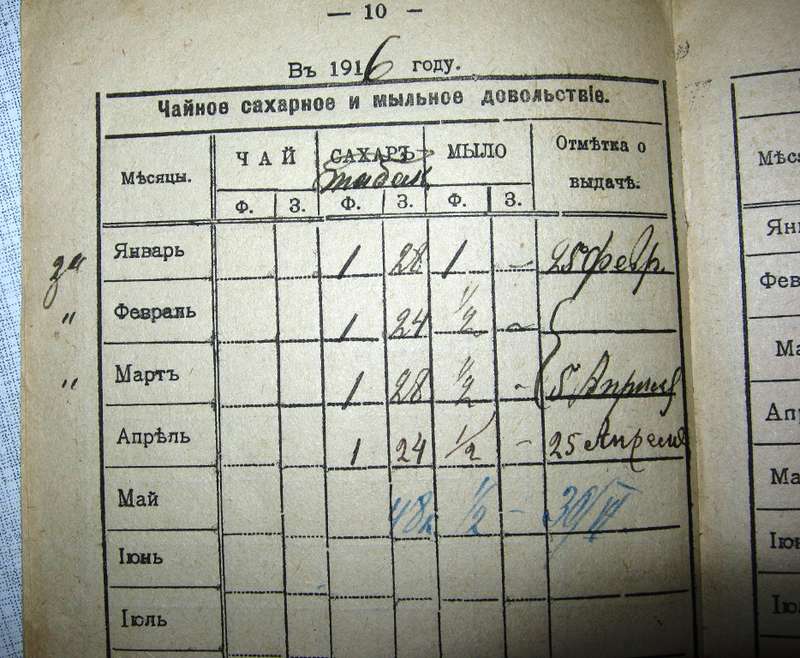 — 10 —
Въ 1916 году.
Чайное сахарное и мыльное довольствіе.
Мѣсяцы. ЧАЙ САХАРЪ МЫЛО Отмѣтка о
табак выдачѣ.
Ф. З. Ф. З. Ф. З.
за Январь 1 28 1 - 25 февр.
" Февраль 1 24 1/2 -
" Мартъ 1 28 1/2 - 5 Апреля
Апрѣль 1 24 1/2 - 25 Апреля
Май 48 1/2 -
Іюнь
Іюль
Мѣса
Янв
Февр
Ма
Апр
Ма
Іюн
Ію